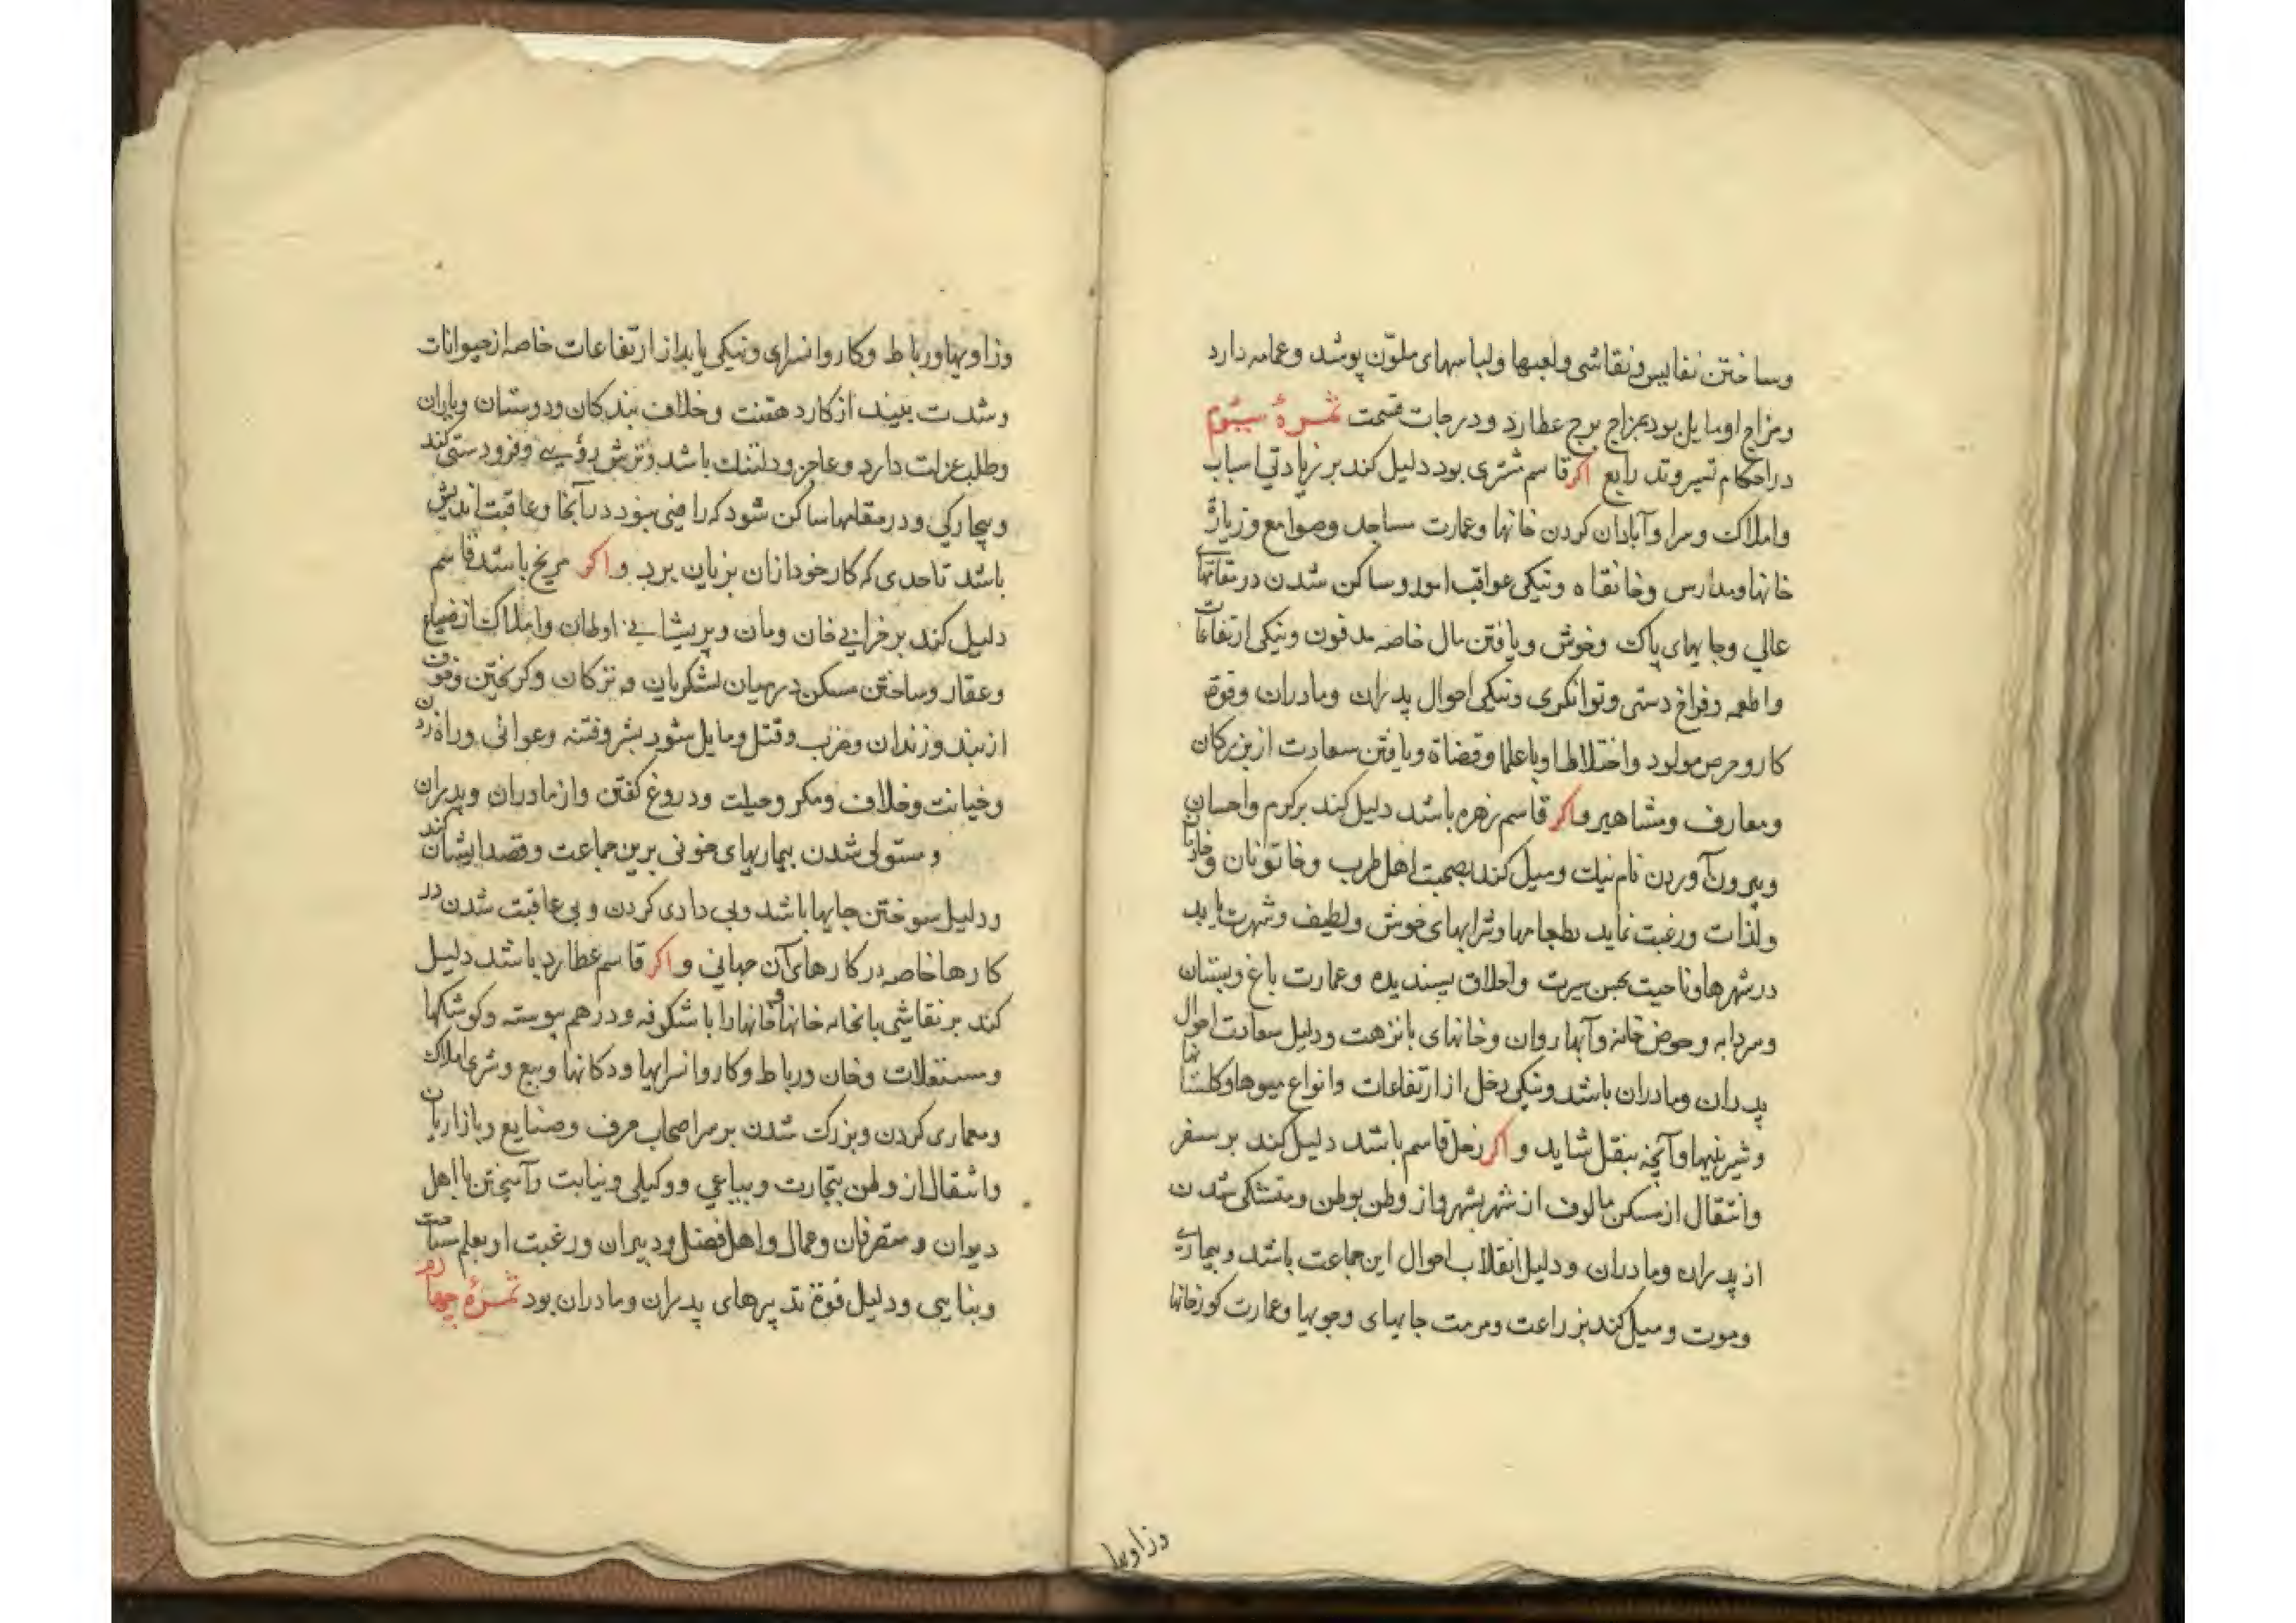 وساختن نفایس ونقاشی ولعبها ولباسهای ملوّن پوشد وعمامه دارد
ومزاج او مایل بود بمزاج برج عطارد ودرجات قسمت ثمرهٔ سیّوم
در احکام تسیر وتد رابع اکر قاسم مشتری بود دلیل کند بر زیادتی اسباب
واملاک وسرا وآبادان کردن خانها وعمارت مساجد وصوامع وزیارة
خانها ومدارس وخانقاه ونیکی عواقب امور وساکن شدن در مقامهای
عالی وجایهای پاک وخوش ویافتن مال خاصه مدفون ونیکی ارتفاعات
واطعمه وفراخ دستی وتوانکری ونیکی احوال پدران ومادران وقوة
کار وحرص مولود واختلاط او با علما وقضاة ویافتن سعادت از بزرکان
ومعارف ومشاهیر واکر قاسم زهره باشد دلیل کند بر کرم واحسان
وبیرون آوردن نام نیک ومیل کند بصحبت اهل طرب وخاتونان
ولذات ورغبت نماید بطعامها وشرابهای خوش ولطیف وشهرت یابد
در شهرها وناحیت بحسن سیرت واخلاق پسندیده وعمارت باغ وبستان
وسردابه وحوض خانه وآبها روان وخانهای با نزهت ودلیل سعادت احوال
پدران ومادران باشد ونیکی دخل از ارتفاعات وانواع میوها وکلستانها
وشیرینیها وآنچه بنقل شاید واکر زحل قاسم باشد دلیل کند بر سفر
وانتقال از مسکن مالوف از شهر بشهر واز وطن بوطن ومتشکی شدن
از پدران ومادران ودلیل انقلاب احوال این جماعت باشد وبیماری
وموت ومیل کند بزراعت ومرمت جایهای وجویها وعمارت کورخانها
وزاویها
وزاویها ورباط وکاروانسرای ونیکی یابد از ارتفاعات خاصه از حیوانات
وشدت بیند از کار دهقنت وخلاف بندکان ودوستان ویاران
وطلب عزلت دارد وعاجز ودلتنک باشد وترش رؤیی وفرودستی کند
وبیچارکی ودر مقامها ساکن شود که راضی نبود در آنجا وعاقبت اندیش
باشد تا حدی که کار خود ازان بزیان برد واکر مریخ باشد قاسم
دلیل کند بر خرابی خان ومان وپریشانی اوطان واملاک از ضیاع
وعقار وساختن مسکن در میان لشکریان وترکان وکریختن وفوت
از بند وزندان وضرب وقتل ومایل شود بشر وفتنه وعوانی وراه زدن
وخیانت وخلاف ومکر وحیلت ودروغ کفتن واز مادران وپدران
ومستولی شدن بیماریهای خونی برین جماعت وقصد ایشان کند
ودلیل سوختن جایها باشد وبی دادی کردن وبی عاقبت شدن در
کارها خاصه در کارهای آن جهانی واکر قاسم عطارد باشد دلیل
کند بر نقاشی خانها را با شکوفه ودرهم پیوسته وکوشکها
ومستغلات وخان ورباط وکاروانسرایها ودکانها وبیع وشری املاک
ومعماری کردن وبزرک شدن بر سر اصحاب حرف وصنایع وبازاریان
وانتقال از وطن بتجارت وبیاعی ووکیلی ونیابت وآمیختن با اهل
دیوان ومتصرفان وعمال واهل فضل ودبیران ورغبت او بعلم
وبنایی ودلیل قوة تدبیرهای پدران ومادران بود ثمرهٔ چهارم